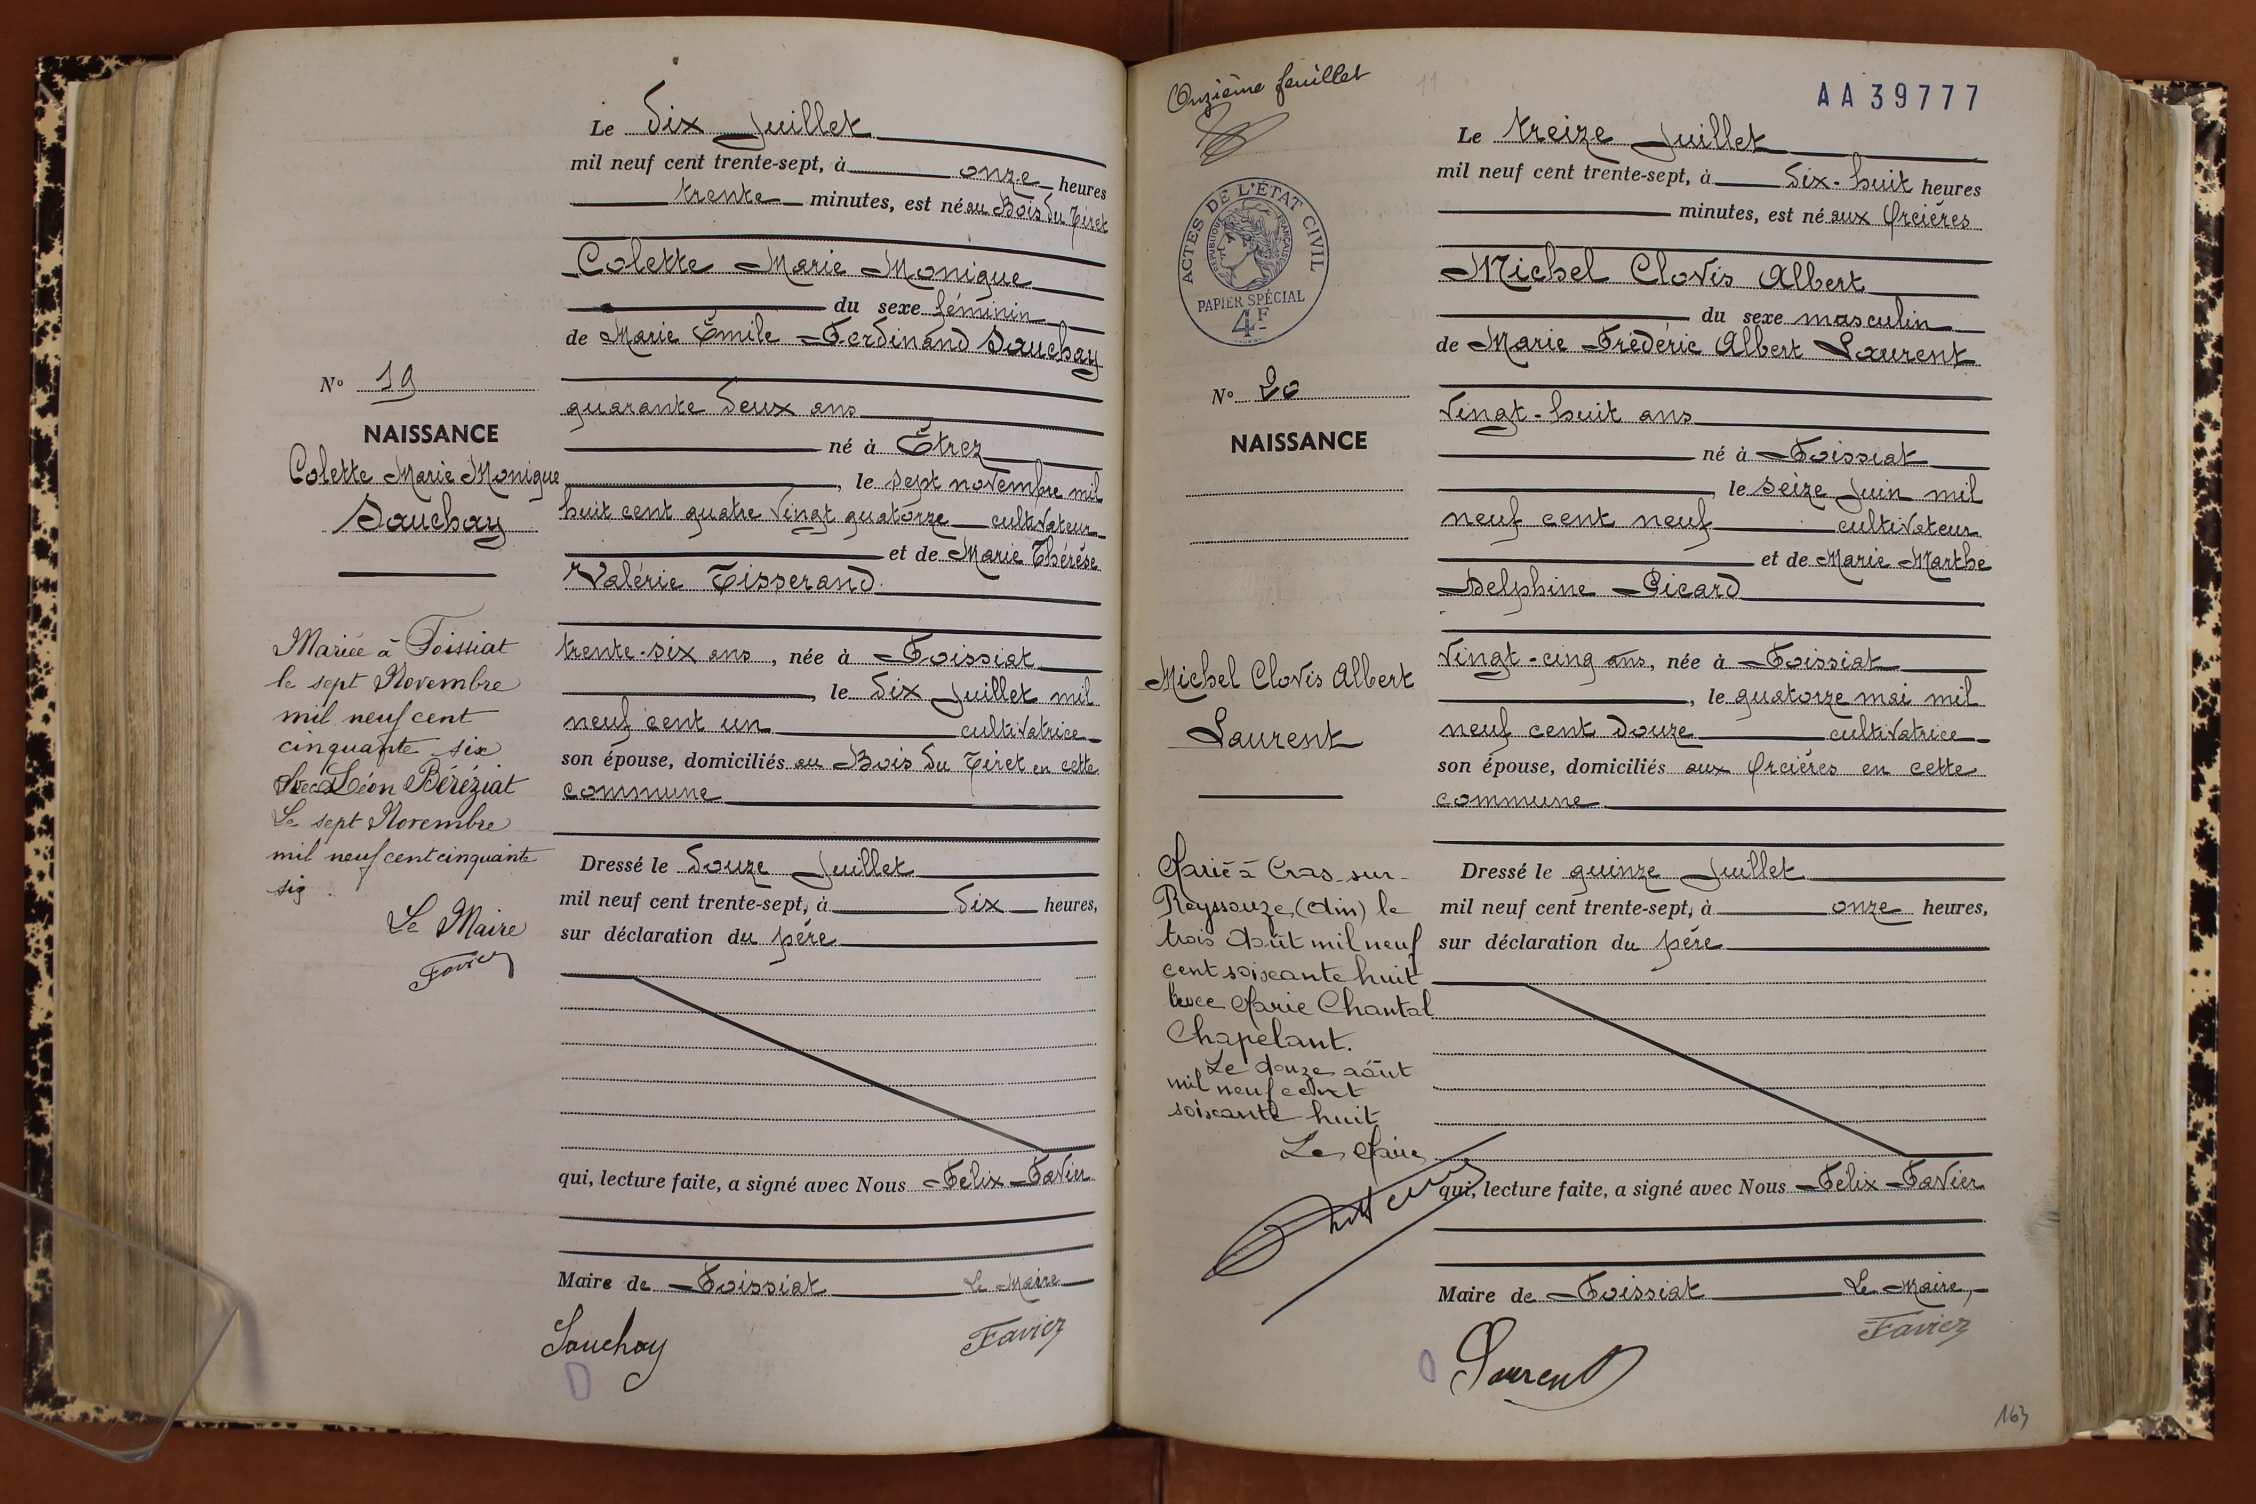 Le dix Juillet
mil neuf cent trente-sept, à onze heures
trente minutes, est né au Bois du Tiret
Colette Marie Monique
du sexe féminin
de Marie Émile Ferdinand Sauchay
quarante deux ans
né à Étrez
, le sept novembre mil
huit cent quatre vingt quatorze cultivateur
et de Marie Thérèse
Valérie Tisserand
trente-six ans, née à Foissiat
, le dix juillet mil
neuf cent un cultivatrice
son épouse, domiciliés au Bois du Tiret en cette
commune
Dressé le douze Juillet
mil neuf cent trente-sept, à dix heures,
sur déclaration du père
qui, lecture faite, a signé avec Nous Félix Favier
Maire de Foissiat Le Maire
Sauchay Favier
No 19
NAISSANCE
Colette Marie Monique
Sauchay
Mariée à Foissiat
le sept Novembre
mil neuf cent
cinquante six
avec Léon Béréziat
Le sept Novembre
mil neuf cent cinquante
six
Le Maire
Favier
Onzième feuillet
11
AA39777
ACTES DE L'ÉTAT CIVIL
RÉPUBLIQUE FRANÇAISE
PAPIER SPÉCIAL
4F
Le treize Juillet
mil neuf cent trente-sept, à dix-huit heures
minutes, est né aux Orcières
Michel Clovis Albert
du sexe masculin
de Marie Frédéric Albert Laurent
vingt-huit ans
né à Foissiat
, le seize Juin mil
neuf cent neuf cultivateur
et de Marie Marthe
Delphine Picard
vingt-cinq ans, née à Foissiat
, le quatorze mai mil
neuf cent douze cultivatrice
son épouse, domiciliés aux Orcières en cette
commune
Dressé le quinze Juillet
mil neuf cent trente-sept, à onze heures,
sur déclaration du père
qui, lecture faite, a signé avec Nous Félix Favier
Maire de Foissiat Le Maire,
Laurent Favier
No 20
NAISSANCE
Michel Clovis Albert
Laurent
Marié à Cras-sur-
Reyssouze (Ain) le
trois Août mil neuf
cent soixante huit
avec Marie Chantal
Chapelant.
Le douze août
mil neuf cent
soixante huit
Le Maire
163